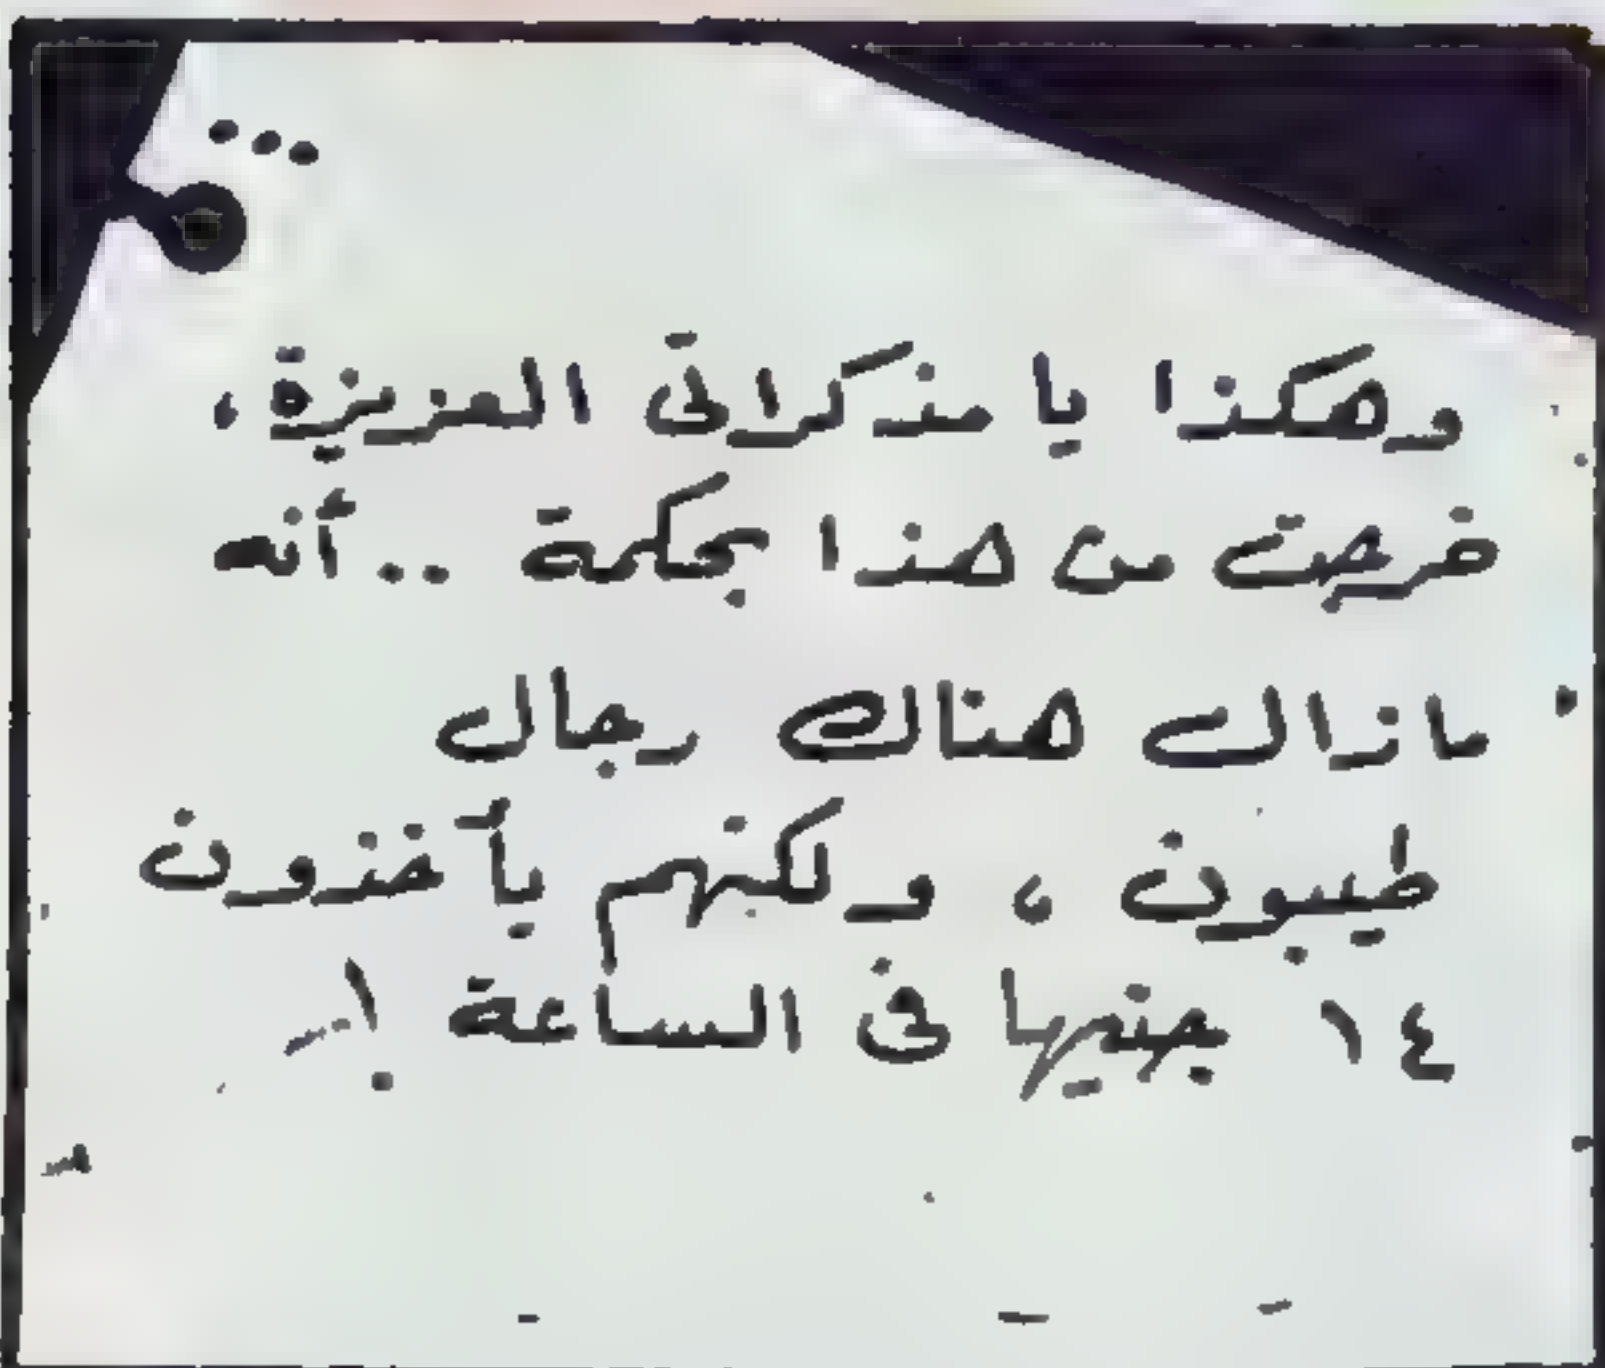 ...
وهكذا يا مذكراتى العزيزة،
خرجت من هذا بحكمة .. أنه
مازال هناك رجال
طيبون، ولكنهم يأخذون
١٤ جنيها فى الساعة !